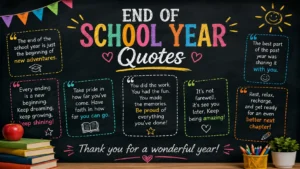 END OF
SCHOOL YEAR
Quotes
The end of the
school year is just
the beginning of
new adventures.
The best part
of the past
year was
sharing it
with you.
Every ending
is a new
beginning.
Keep dreaming,
keep growing,
keep shining!
Take pride in
how far you've
come. Have
faith in how
far you can go.
You did the work.
You had the fun.
You made the
memories.
Be proud of
everything
you've done!
It's not
farewell,
it's see you
later. Keep
being amazing!
Rest, relax,
recharge,
and get ready
for an even
better next
chapter!
Thank you for a wonderful year!